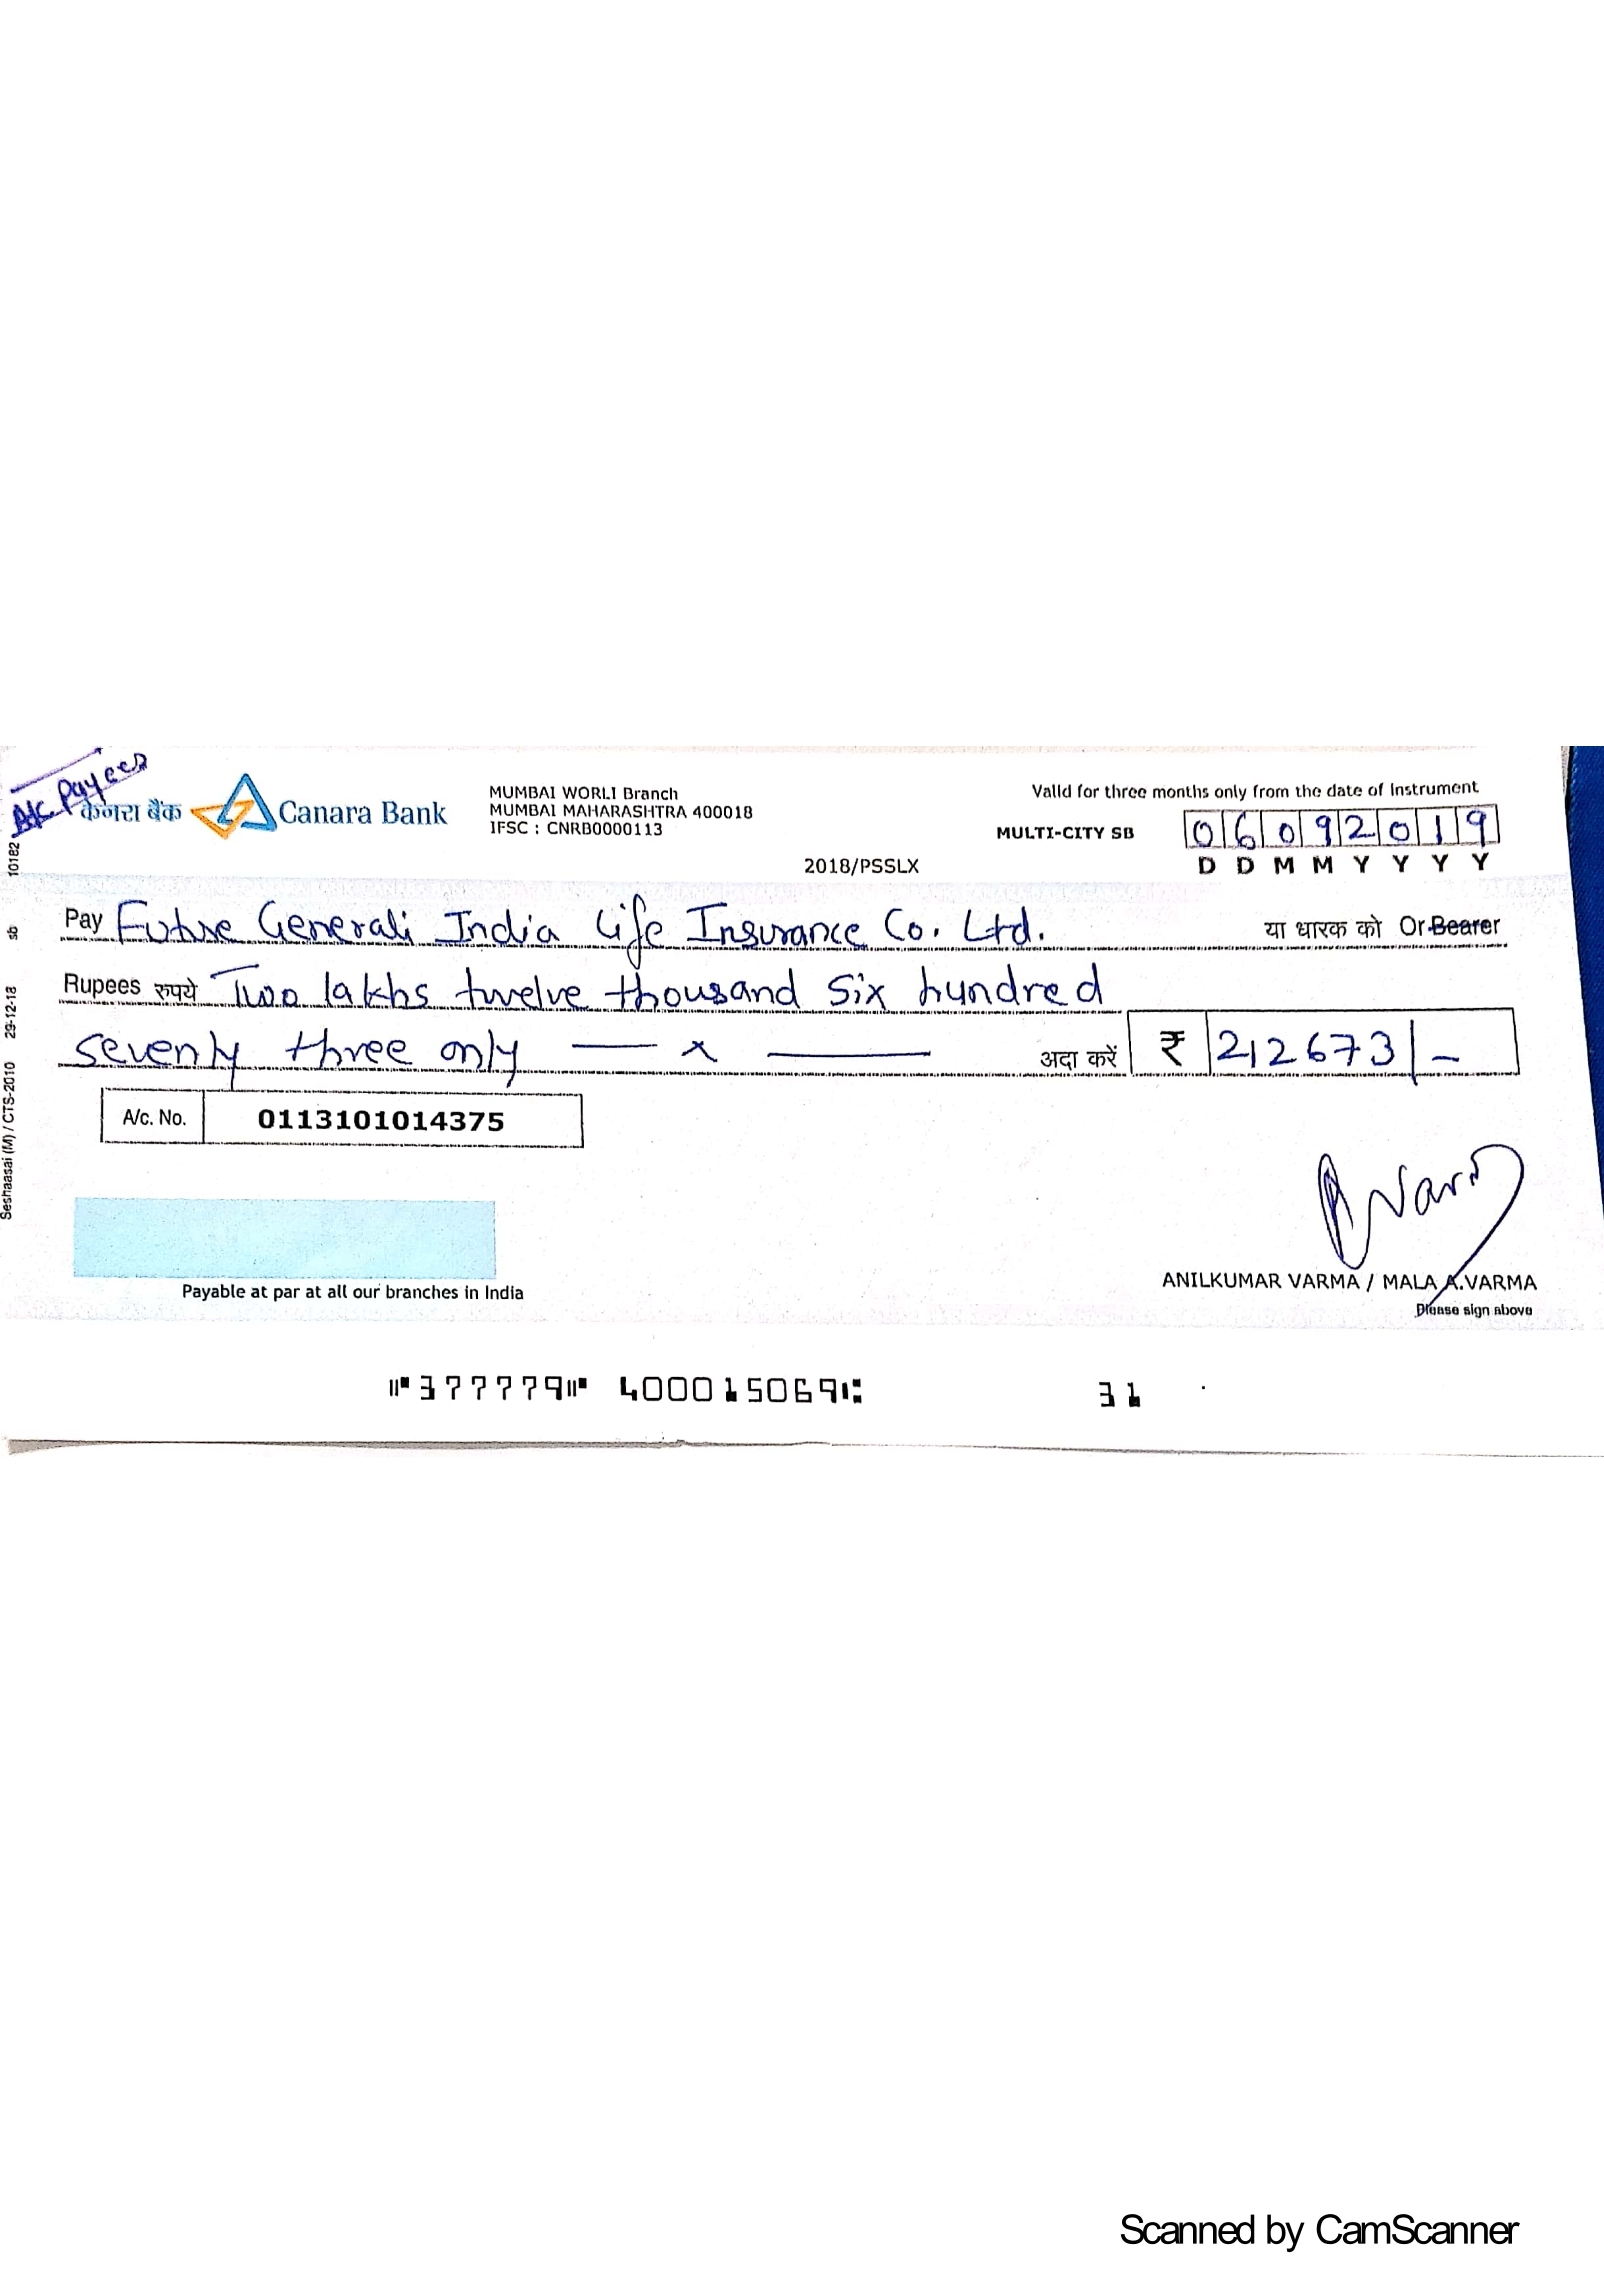 A/c Payees
केनरा बैंक Canara Bank
MUMBAI WORLI Branch
MUMBAI MAHARASHTRA 400018
IFSC : CNRB0000113
2018/PSSLX
Valid for three months only from the date of Instrument
MULTI-CITY SB 06092019
D D M M Y Y Y Y
Pay Future Generali India Life Insurance Co. Ltd. या धारक को Or Bearer
Rupees रुपये Two lakhs twelve thousand six hundred
seventy three only — x — अदा करें ₹ 212673/-
A/c. No. 0113101014375
Payable at par at all our branches in India
A Varma
ANILKUMAR VARMA / MALA A.VARMA
Please sign above
⑈377779⑈ 400015069⑆ 31
Seshaasai (M) / CTS-2010 29-12-18 sb 10182
Scanned by CamScanner